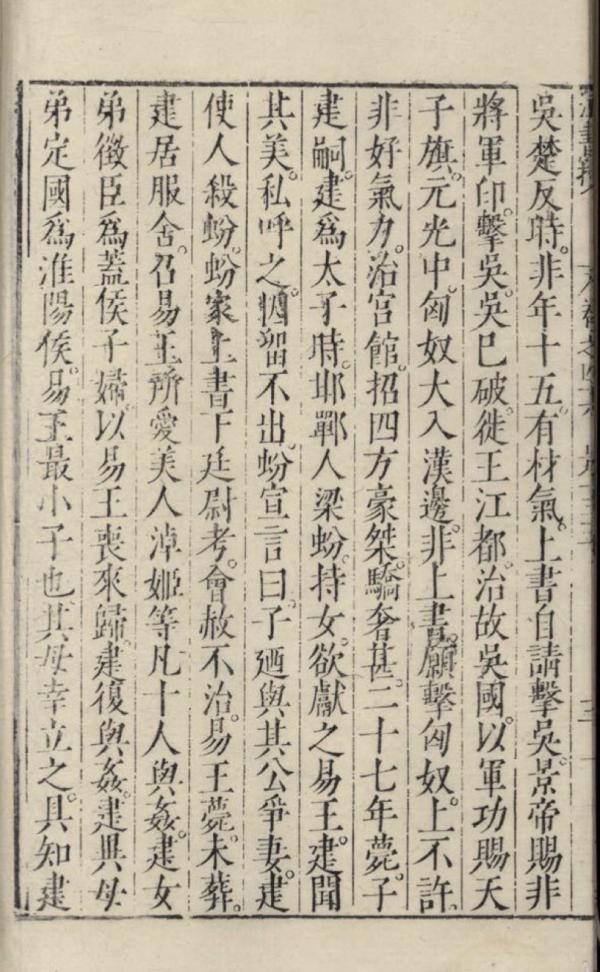 吳楚反時。非年十五。有材氣。上書自請擊吳。景帝賜非
將軍印。擊吳。吳已破。徙王江都。治故吳國。以軍功賜天
子旗。元光中匈奴大入漢邊。非上書。願擊匈奴。上不許。
非好氣力。治宮館。招四方豪桀。驕奢甚。二十七年薨。子
建嗣。建爲太子時。邯鄲人梁蚡。持女。欲獻之易王。建聞
其美。私呼之。因留不出。蚡宣言曰。子廼與其公爭妻。建
使人殺蚡。蚡家上書。下廷尉考。會赦不治。易王薨。未葬。
建居服舍。召易王所愛美人淖姬等凡十人與姦。建女
弟徵臣爲蓋侯子婦。以易王喪來歸。建復與姦。建異母
弟定國爲淮陽侯。易王最小子也。其母幸立之。具知建